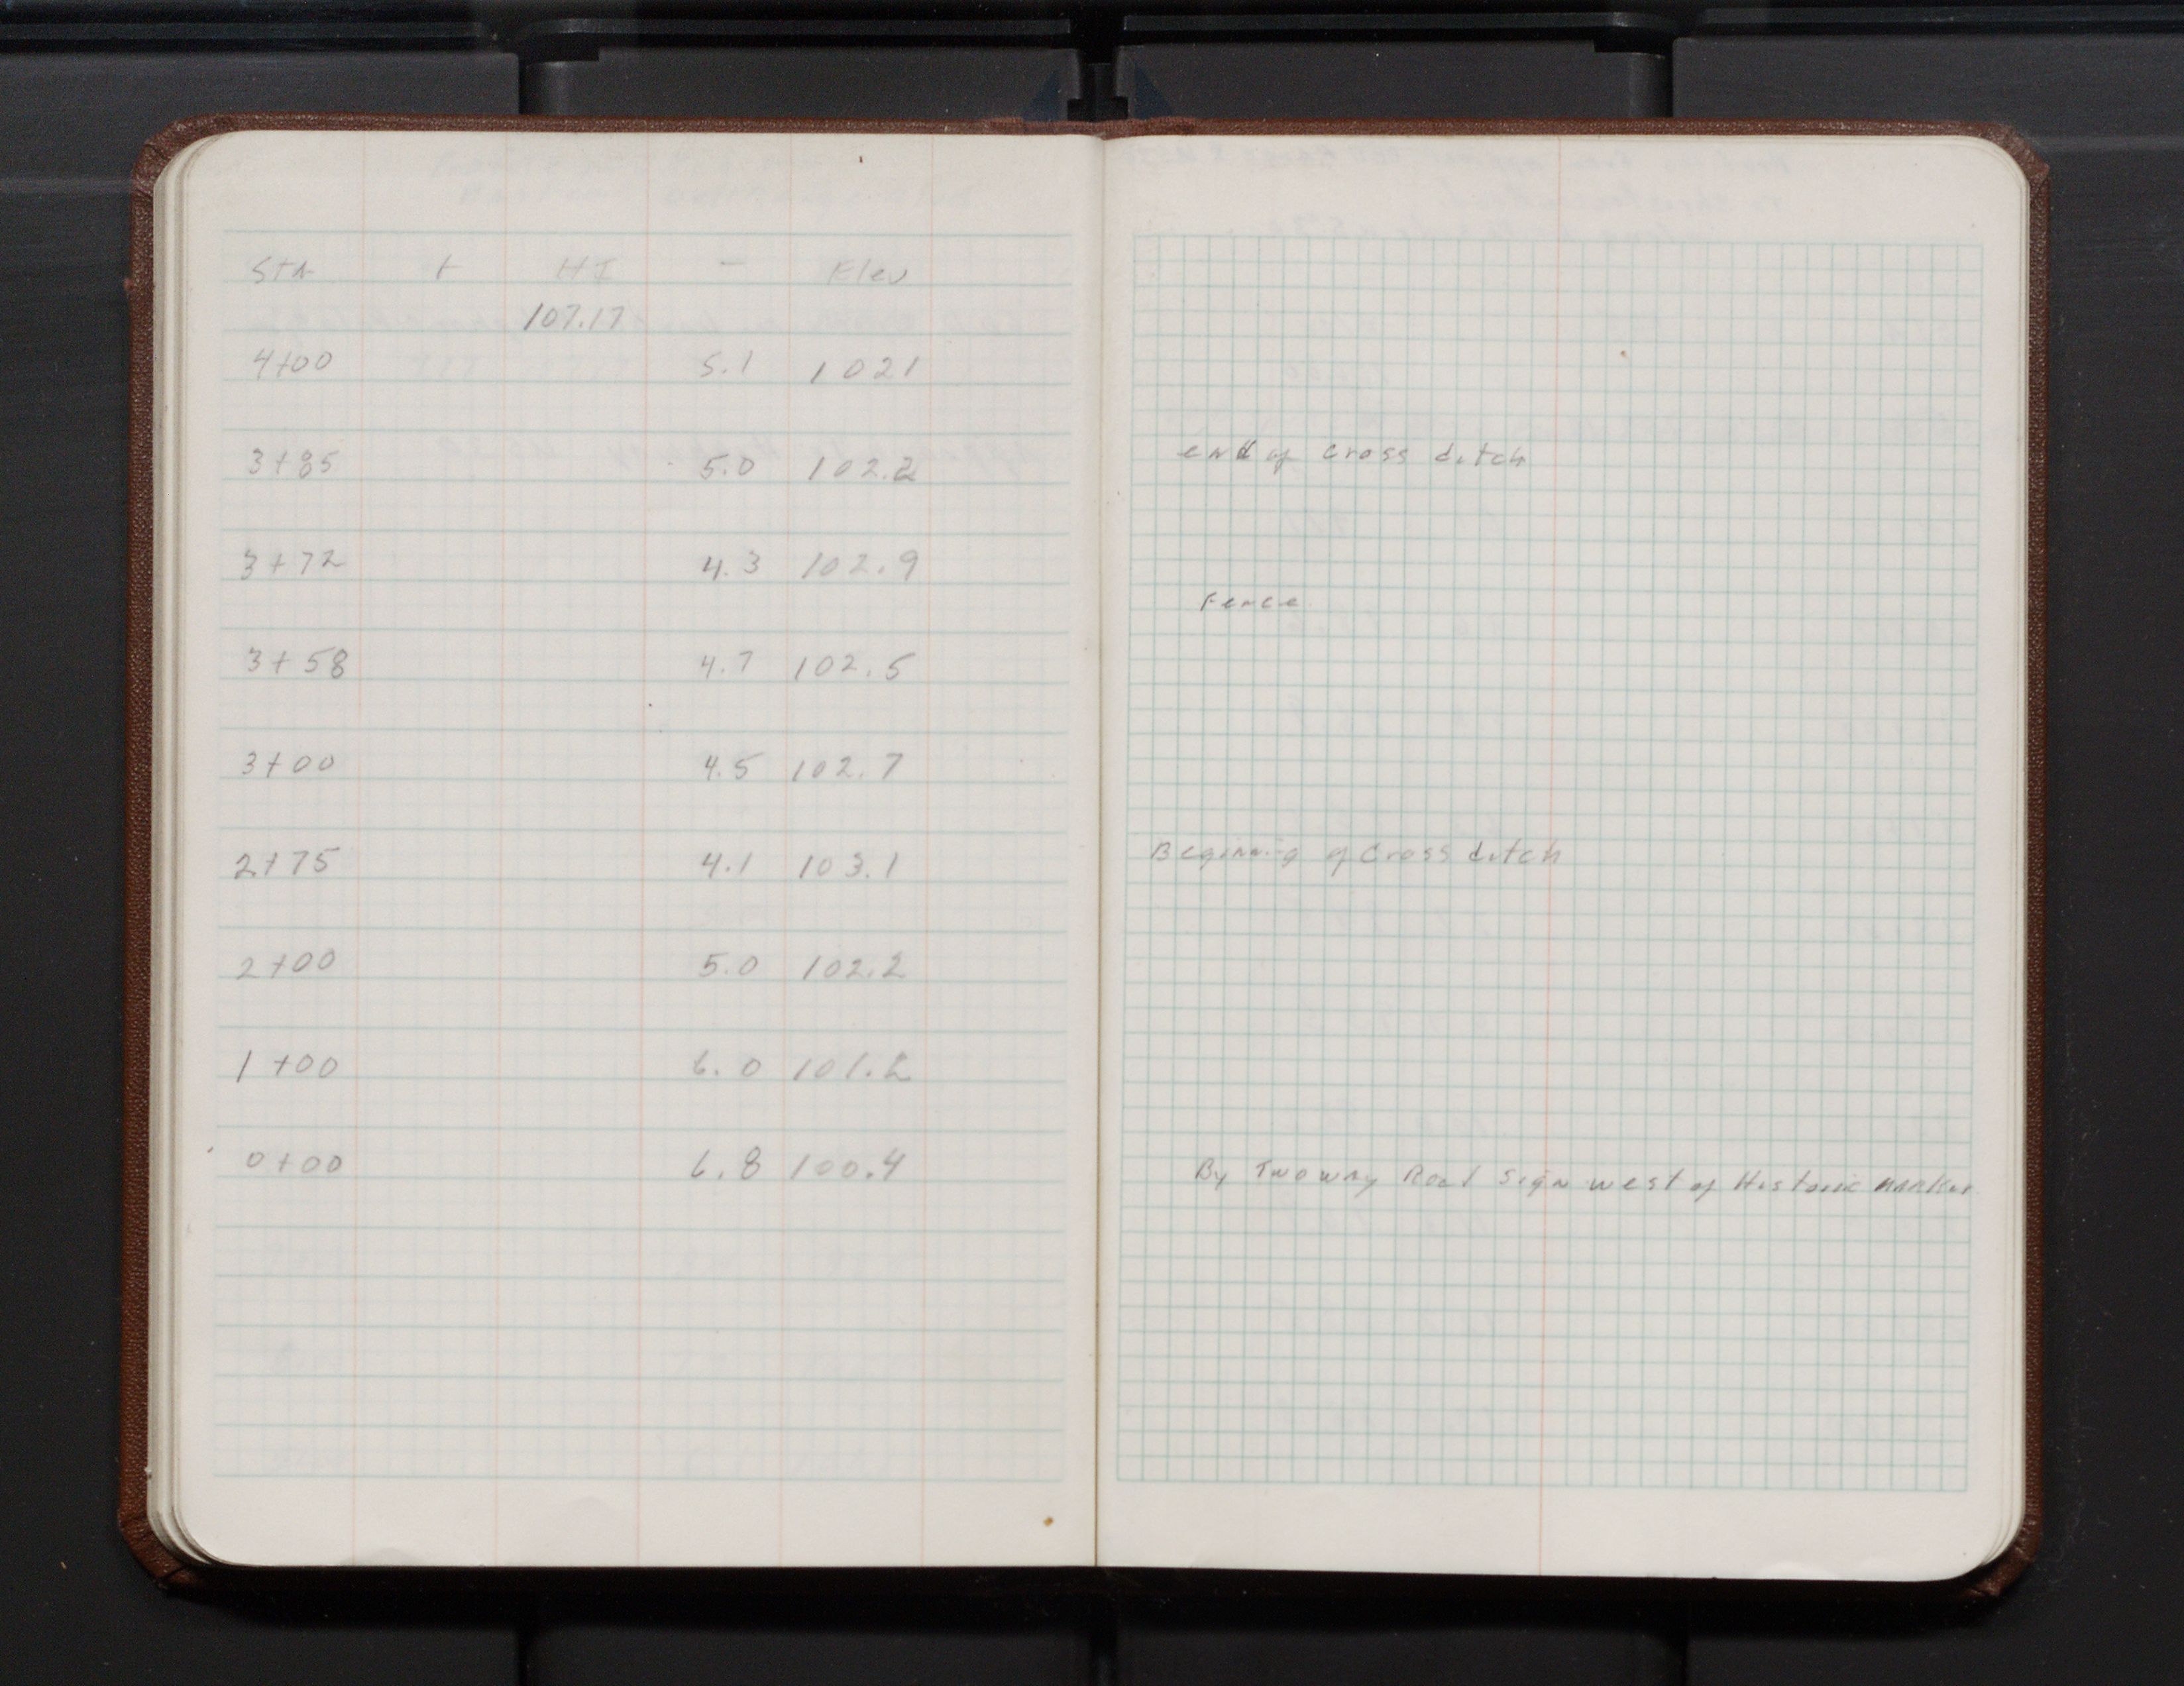 STA + HI - Elev
107.17
4+00 5.1 1021
3+85 5.0 102.2
3+72 4.3 102.9
3+58 4.7 102.5
3+00 4.5 102.7
2+75 4.1 103.1
2+00 5.0 102.2
1+00 6.0 101.2
0+00 6.8 100.4
end of Cross ditch
Fence
Beginning of Cross ditch
By Two way Road Sign west of Historic marker